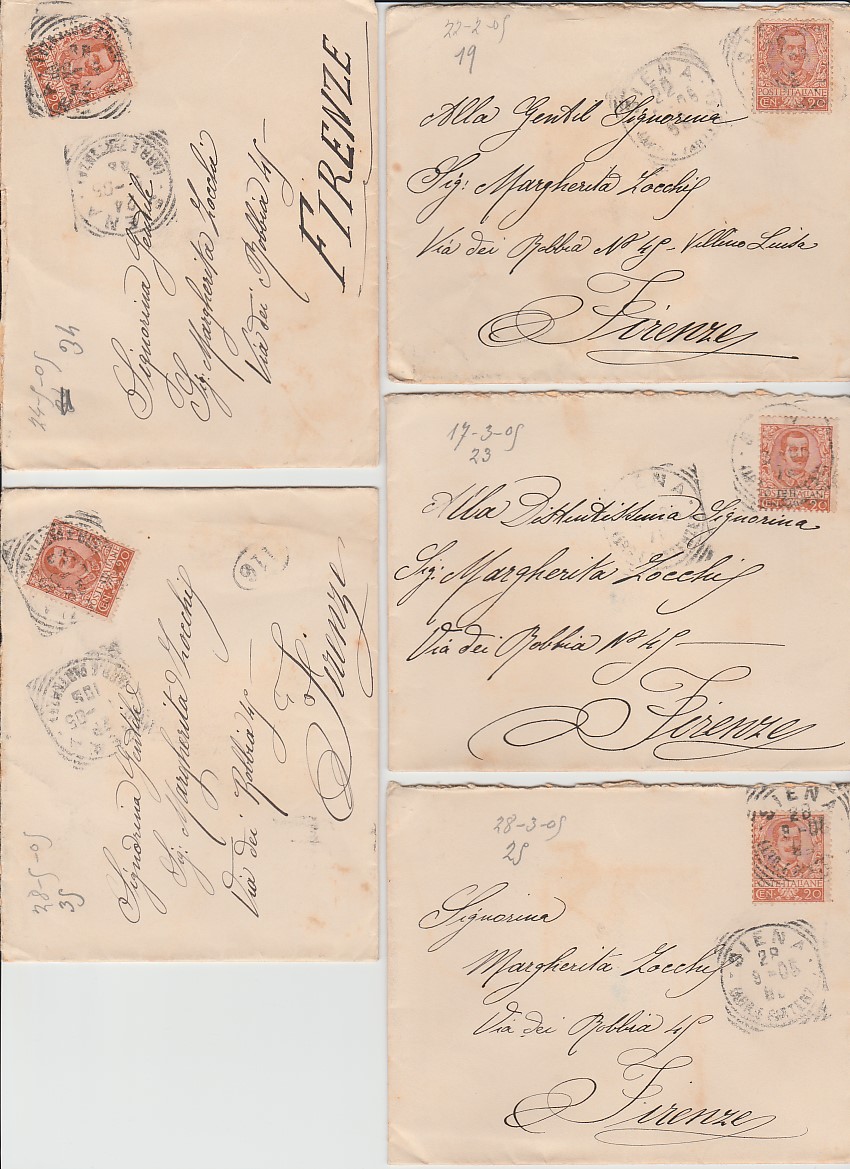 24-5-05
34
Signorina Gentile
Sig: Margherita Zocchi
Via dei Robbia 45-
FIRENZE
POSTE ITALIANE
CEN. 20
SIENA
22-2-05
19
Alla Gentil Signorina
Sig: Margherita Zocchi
Via dei Robbia No 45 - Villino Luisa
Firenze
SIENA
22
POSTE ITALIANE
CEN. 20
17-3-05
23
Alla Distintissima Signorina
Sig. Margherita Zocchi
Via dei Robbia No 45
Firenze
SIENA
POSTE ITALIANE
CEN. 20
28-5-05
35
Signorina Gentile
Sig. Margherita Zocchi
Via dei Robbia 45
Firenze
116
POSTE ITALIANE
CEN. 20
28-3-05
25
Signorina
Margherita Zocchi
Via dei Robbia 45
Firenze
SIENA
28
POSTE ITALIANE
CEN. 20
SIENA
28
3-05